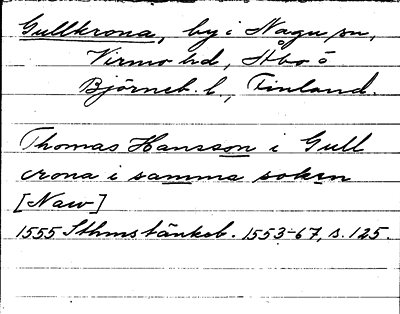 Gullkrona, by i Nagu sn,
Virmo hd, Åbo o
Björneb. l., Finland.
Thomas Hansson i Gull
crona i samma soken
[Naw]
1555 Sthms tänkeb. 1553-67, s. 125.